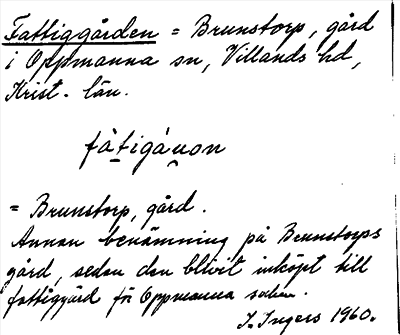 Fattiggården = Brunstorp, gård
i Oppmanna sn, Villands hd,
Krist. län.
fàtigáuon
= Brunstorp, gård.
Annan benämning på Brunstorps
gård, sedan den blivit inköpt till
fattiggård för Oppmanna socken.
I. Ingers 1960.